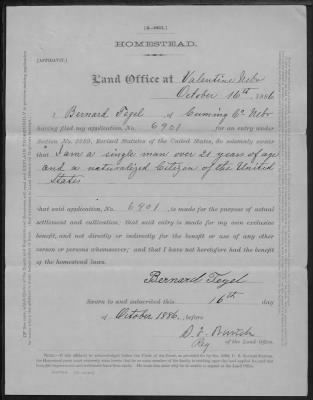 HOMESTEAD.
(AFFIDAVIT.)
Land Office at Valentine Nebr
October 16th, 1886
I Bernard Tegel, of Cuming Co Nebr
having filed my application, No. 6901 for an entry under
Section No. 2289, Revised Statutes of the United States, do solemnly swear
that I am a single man over 21 years of age
and a naturalized Citizen of the United
States
that said application, No. 6901, is made for the purpose of actual
settlement and cultivation; that said entry is made for my own exclusive
benefit, and not directly or indirectly for the benefit or use of any other
person or persons whomsoever; and that I have not heretofore had the benefit
of the homestead laws.
Bernard Tegel
Sworn to and subscribed this 16th day
of October 1886, before
Reg of the Land Office.